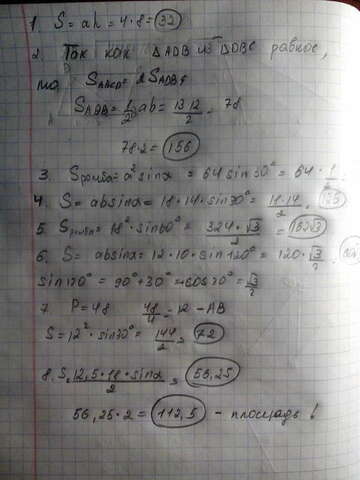 1. S = ah = 4·8 = 32
2. Так как ΔADB и ΔDBC равные,
то SABCD = 2SADB
SADB = 1/2 ab = 13·12/2 = 78
78·2 = 156
3. Sромба = a² sin α = 64 sin 30° = 64 · 1
4. S = ab sin α = 18·14·sin 30° = 18·14/2 =
5. Sромба = 18² · sin 60° = 324·√3/2 = 162√3
6. S = ab sin α = 12·10·sin 120° = 120·√3/2
sin 120° = 90° + 30° = cos 30° = √3/2
7. P = 48 48/4 = 12 – AB
S = 12² · sin 30° = 144/2 = 72
8. S = 12,5·18·sin α/2 = 56,25
56,25·2 = 112,5 – площадь !